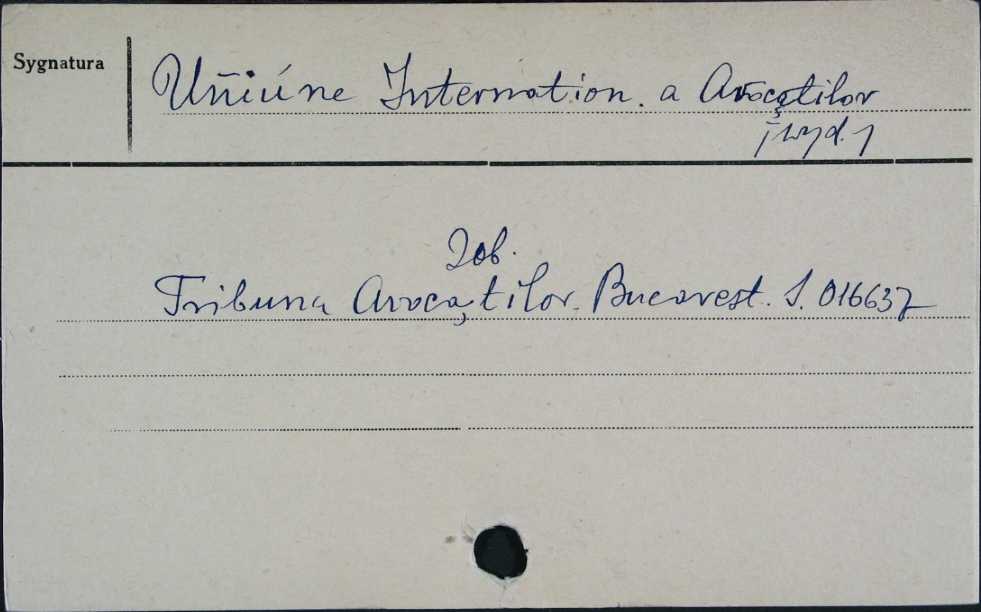 Sygnatura
Uniúne Internation. a Avocaţilor
/wyd./
Zob.
Tribuna Avocaţilor. Bucarest. S. 016637